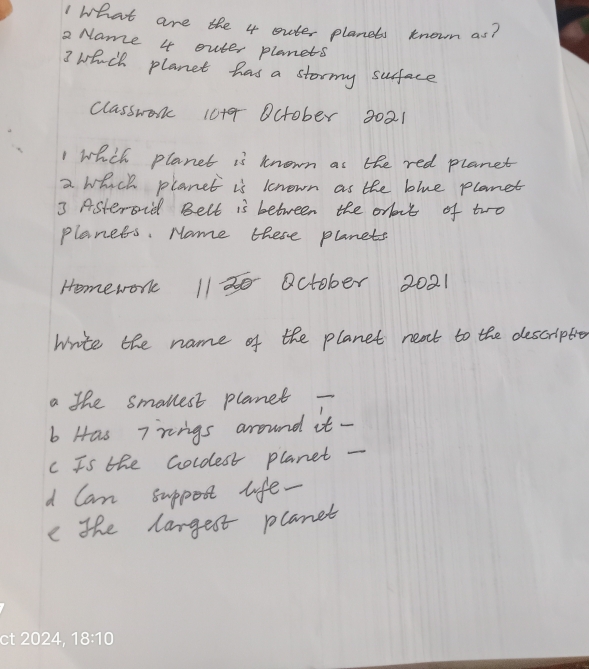 1 What are the 4 outer planets known as?
2 Name 4 outer planets
3 Which planet has a stormy surface
Classwork 10th October 2021
1 Which planet is known as the red planet
2 Which planet is known as the blue planet
3 Asteroid Belt is between the orbit of two
planets. Name these planets
Homework 11 20 October 2021
Write the name of the planet next to the description
a The smallest planet —
b Has 7 rings around it –
c Is the Coldest planet —
d Can support life –
e The largest planet
ct 2024, 18:10